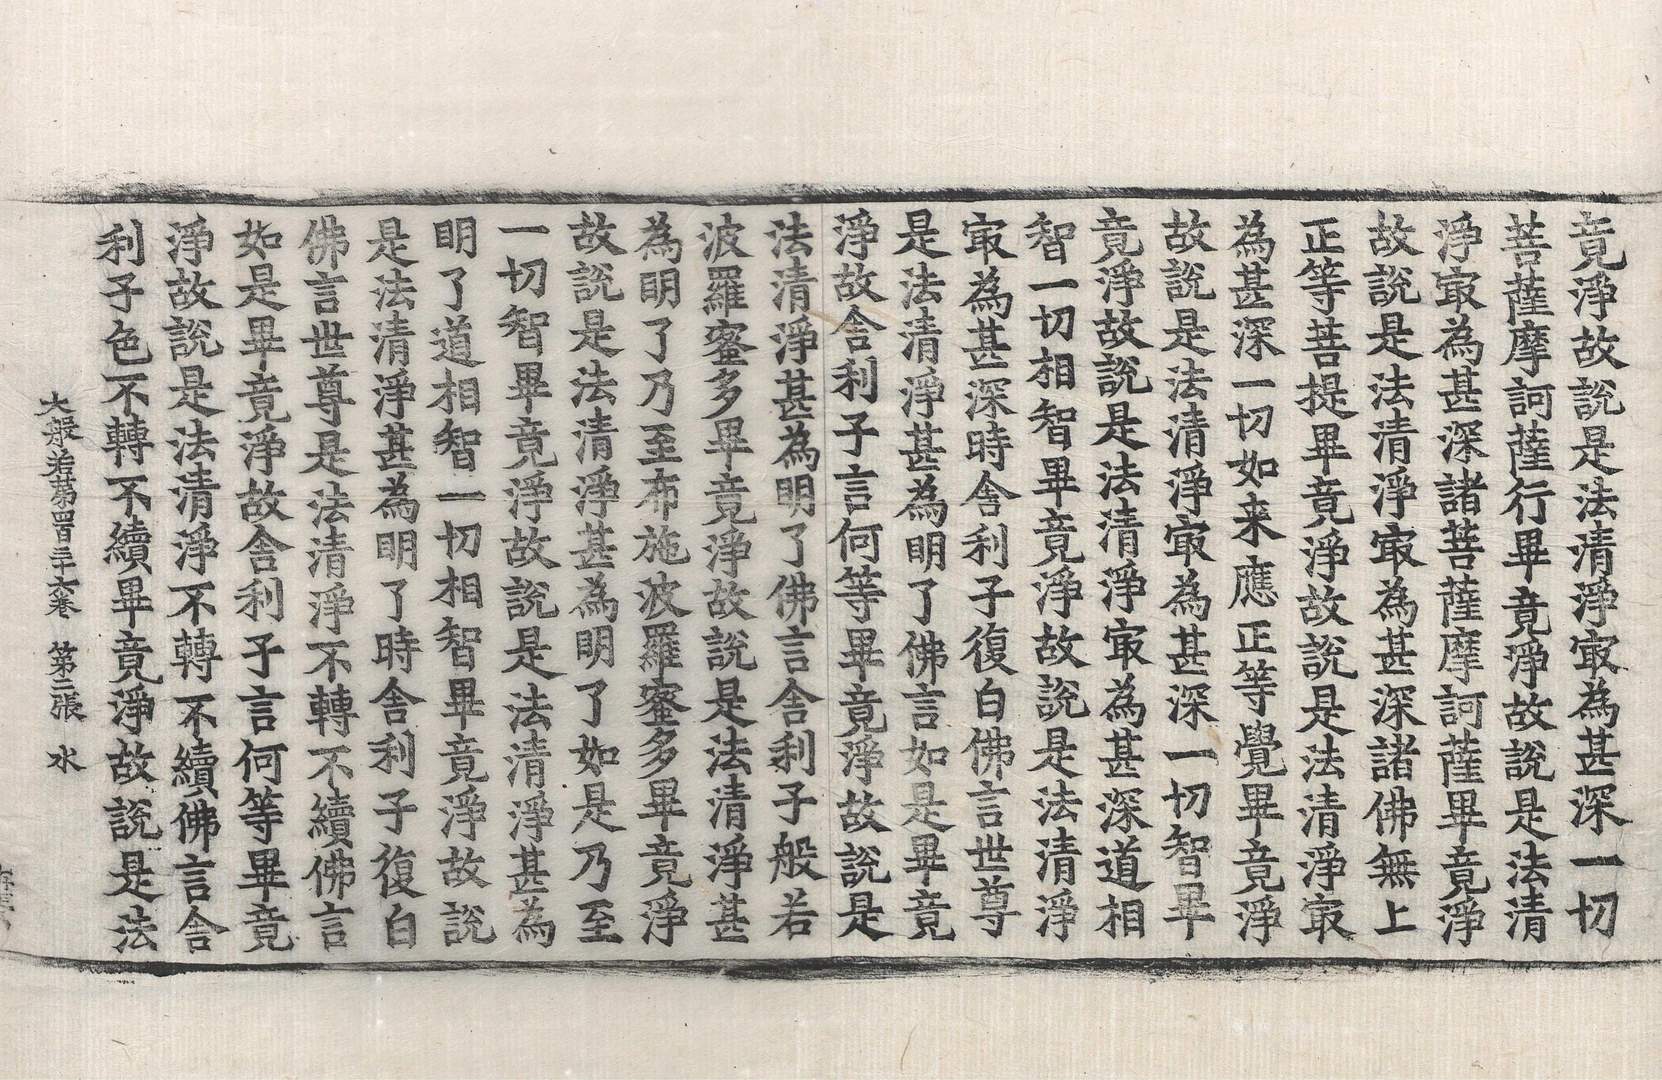 竟淨故說是法清淨㝡為甚深一切
菩薩摩訶薩行畢竟淨故說是法清
淨㝡為甚深諸菩薩摩訶薩畢竟淨
故說是法清淨㝡為甚深諸佛無上
正等菩提畢竟淨故說是法清淨㝡
為甚深一切如来應正等覺畢竟淨
故說是法清淨㝡為甚深一切智畢
竟淨故說是法清淨㝡為甚深道相
智一切相智畢竟淨故說是法清淨
㝡為甚深時舍利子復白佛言世尊
是法清淨甚為明了佛言如是畢竟
淨故舍利子言何等畢竟淨故說是
法清淨甚為明了佛言舍利子般若
波羅蜜多畢竟淨故說是法清淨甚
為明了乃至布施波羅蜜多畢竟淨
故說是法清淨甚為明了如是乃至
一切智畢竟淨故說是法清淨甚為
明了道相智一切相智畢竟淨故說
是法清淨甚為明了時舍利子復白
佛言世尊是法清淨不轉不續佛言
如是畢竟淨故舍利子言何等畢竟
淨故說是法清淨不轉不續佛言舍
利子色不轉不續畢竟淨故說是法
大般若第四百三十六卷　第二張　水